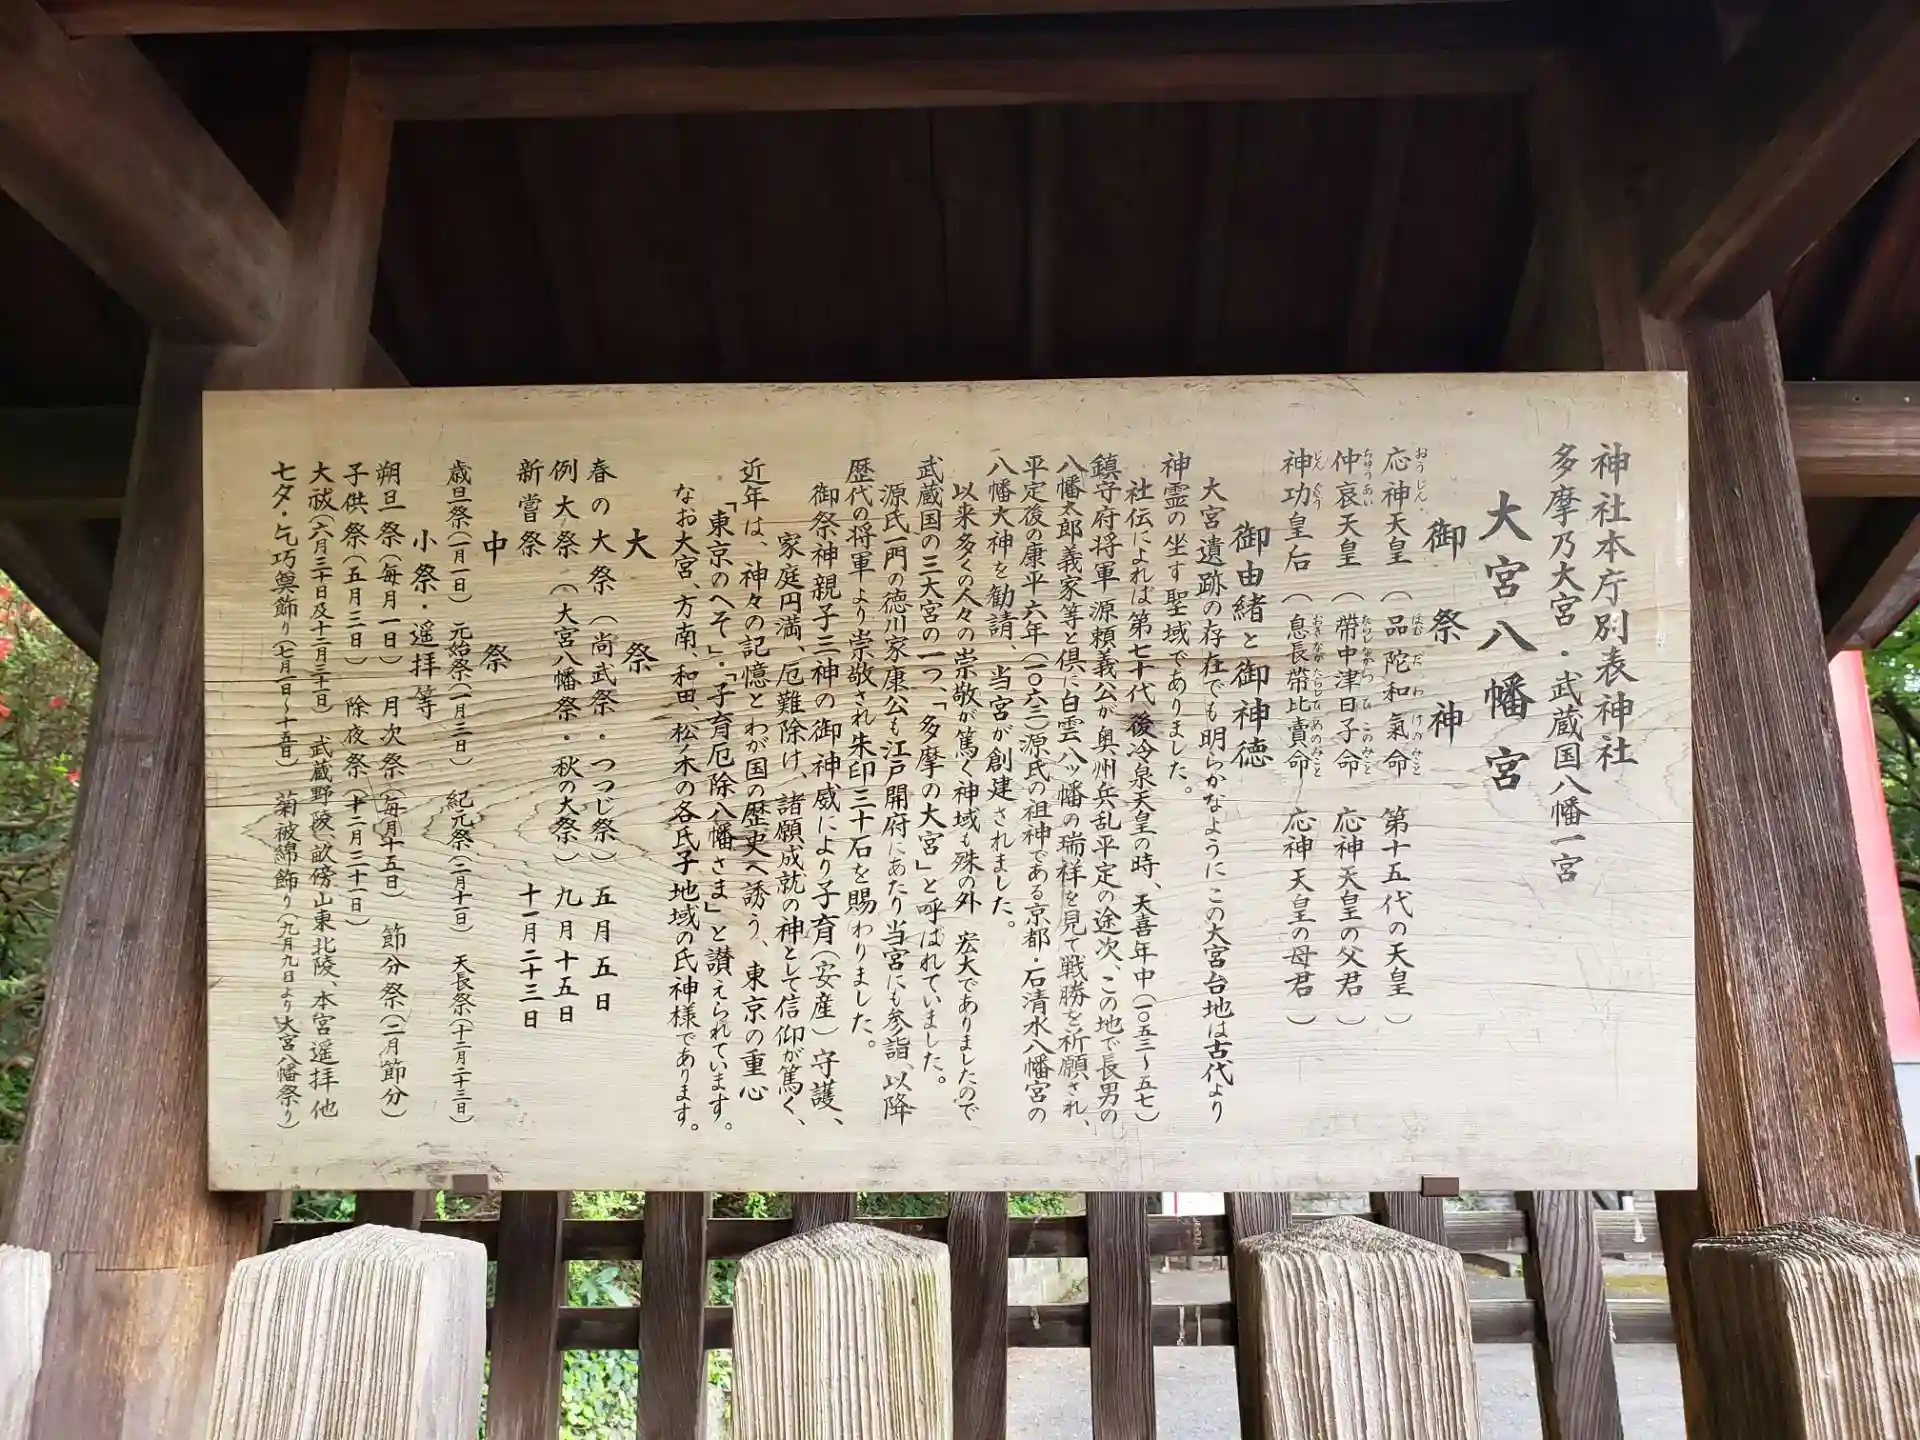 神社本庁別表神社
多摩乃大宮・武蔵国八幡一宮
大宮八幡宮
御祭神
応神天皇（品陀和氣命　第十五代の天皇）
おうじん　ほむだわけのみこと
仲哀天皇（帶中津日子命　応神天皇の父君）
ちゅうあい　たらしなかつひこのみこと
神功皇后（息長帶比賣命　応神天皇の母君）
じんぐう　おきながたらしひめのみこと
御由緒と御神徳
大宮遺跡の存在でも明らかなように この大宮台地は古代より
神霊の坐す聖域でありました。
社伝によれば第七十代 後冷泉天皇の時、天喜年中（一〇五三〜五七）
鎮守府将軍 源頼義公が奥州兵乱平定の途次、この地で長男の
八幡太郎義家等と倶に白雲八ッ幡の瑞祥を見て戦勝を祈願され、
平定後の康平六年（一〇六三）源氏の祖神である京都・石清水八幡宮の
八幡大神を勧請、当宮が創建されました。
以来多くの人々の崇敬が篤く神域も殊の外 宏大でありましたので
武蔵国の三大宮の一つ、「多摩の大宮」と呼ばれていました。
源氏一門の徳川家康公も江戸開府にあたり当宮にも参詣、以降
歴代の将軍より崇敬され朱印三十石を賜わりました。
御祭神親子三神の御神威により子育（安産）守護、
家庭円満、厄難除け、諸願成就の神として信仰が篤く、
近年は、神々の記憶とわが国の歴史へ誘う、東京の重心
「東京のへそ」・「子育厄除八幡さま」と讃えられています。
なお大宮、方南、和田、松ノ木の各氏子地域の氏神様であります。
大祭
春の大祭（尚武祭・つつじ祭）　五月五日
例大祭（大宮八幡祭・秋の大祭）　九月十五日
新嘗祭　十一月二十三日
中祭
歳旦祭（一月一日）　元始祭（一月三日）　紀元祭（二月十一日）　天長祭（十二月二十三日）
小祭・遥拝等
朔旦祭（毎月一日）　月次祭（毎月十五日）　節分祭（二月節分）
子供祭（五月三日）　除夜祭（十二月三十一日）
大祓（六月三十日及十二月三十一日）　武蔵野陵・畝傍山東北陵、本宮遥拝他
七夕・乞巧奠飾り（七月一日〜十五日）　菊被綿飾り（九月九日より大宮八幡祭り）